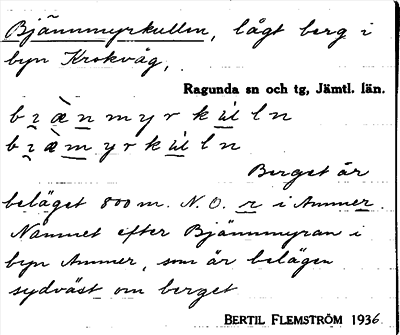 Björnmyrkullen, lågt berg i
byn Krokvåg,
Ragunda sn och tg, Jämtl. län.
Berget är
beläget 800 m. N.O. r i Ammer.
Namnet efter Björnmyran i
byn Ammer, som är belägen
sydväst om berget
BERTIL FLEMSTRÖM 1936.